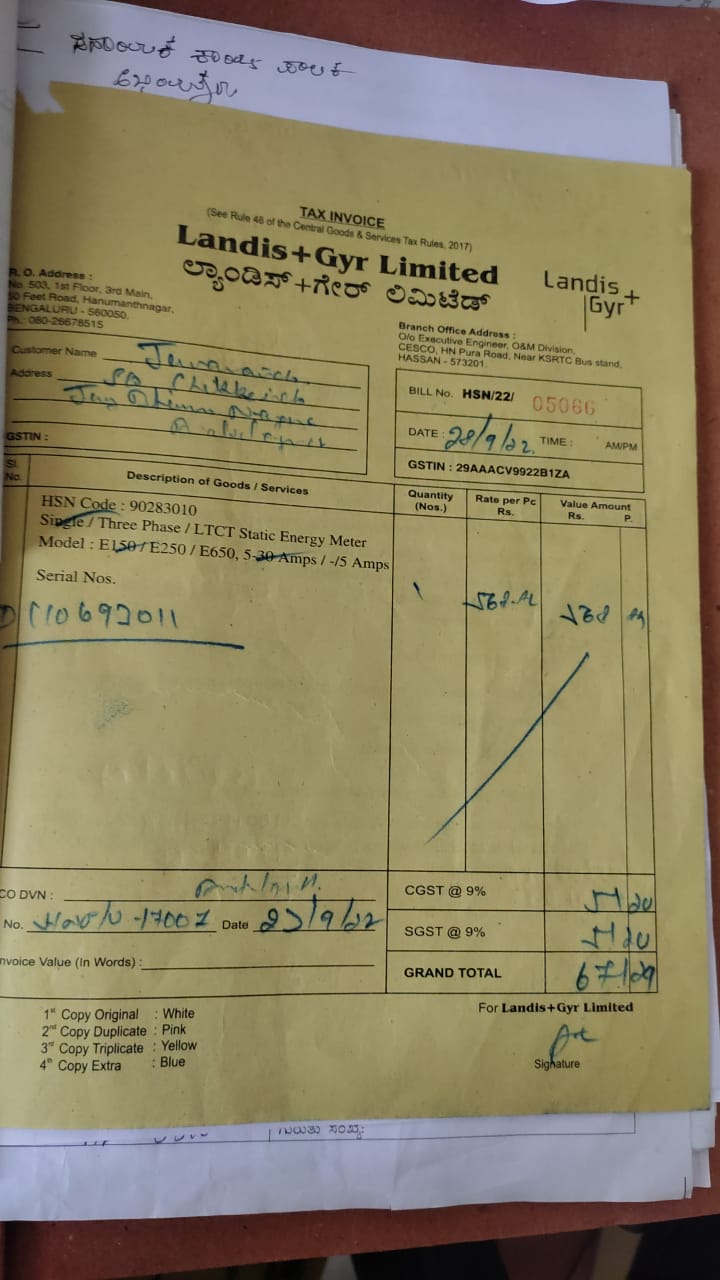 TAX INVOICE
(See Rule 46 of the Central Goods & Services Tax Rules, 2017)
Landis+Gyr Limited
ಲ್ಯಾಂಡಿಸ್+ಗೇರ್ ಲಿಮಿಟೆಡ್
Landis+
Gyr
R. O. Address :
No. 503, 1st Floor, 3rd Main,
50 Feet Road, Hanumanthnagar,
BENGALURU - 560050.
Ph.: 080-26678515
Branch Office Address :
O/o Executive Engineer, O&M Division,
CESCO, HN Pura Road, Near KSRTC Bus stand,
HASSAN - 573201.
Customer Name
Address
GSTIN :
BILL No. HSN/22/ 05066
DATE : 28/9/22. TIME : AM/PM
GSTIN : 29AAACV9922B1ZA
Sl. No. Description of Goods / Services Quantity (Nos.) Rate per Pc Rs. Value Amount Rs. P.
HSN Code : 90283010
Single / Three Phase / LTCT Static Energy Meter
Model : E150 / E250 / E650, 5-30 Amps / -/5 Amps
Serial Nos.
1 568 568
CO DVN :
No. 17007 Date 27/9/22
Invoice Value (In Words) :
CGST @ 9% 51 20
SGST @ 9% 51 20
GRAND TOTAL 671 29
1st Copy Original : White
2nd Copy Duplicate : Pink
3rd Copy Triplicate : Yellow
4th Copy Extra : Blue
For Landis+Gyr Limited
Signature